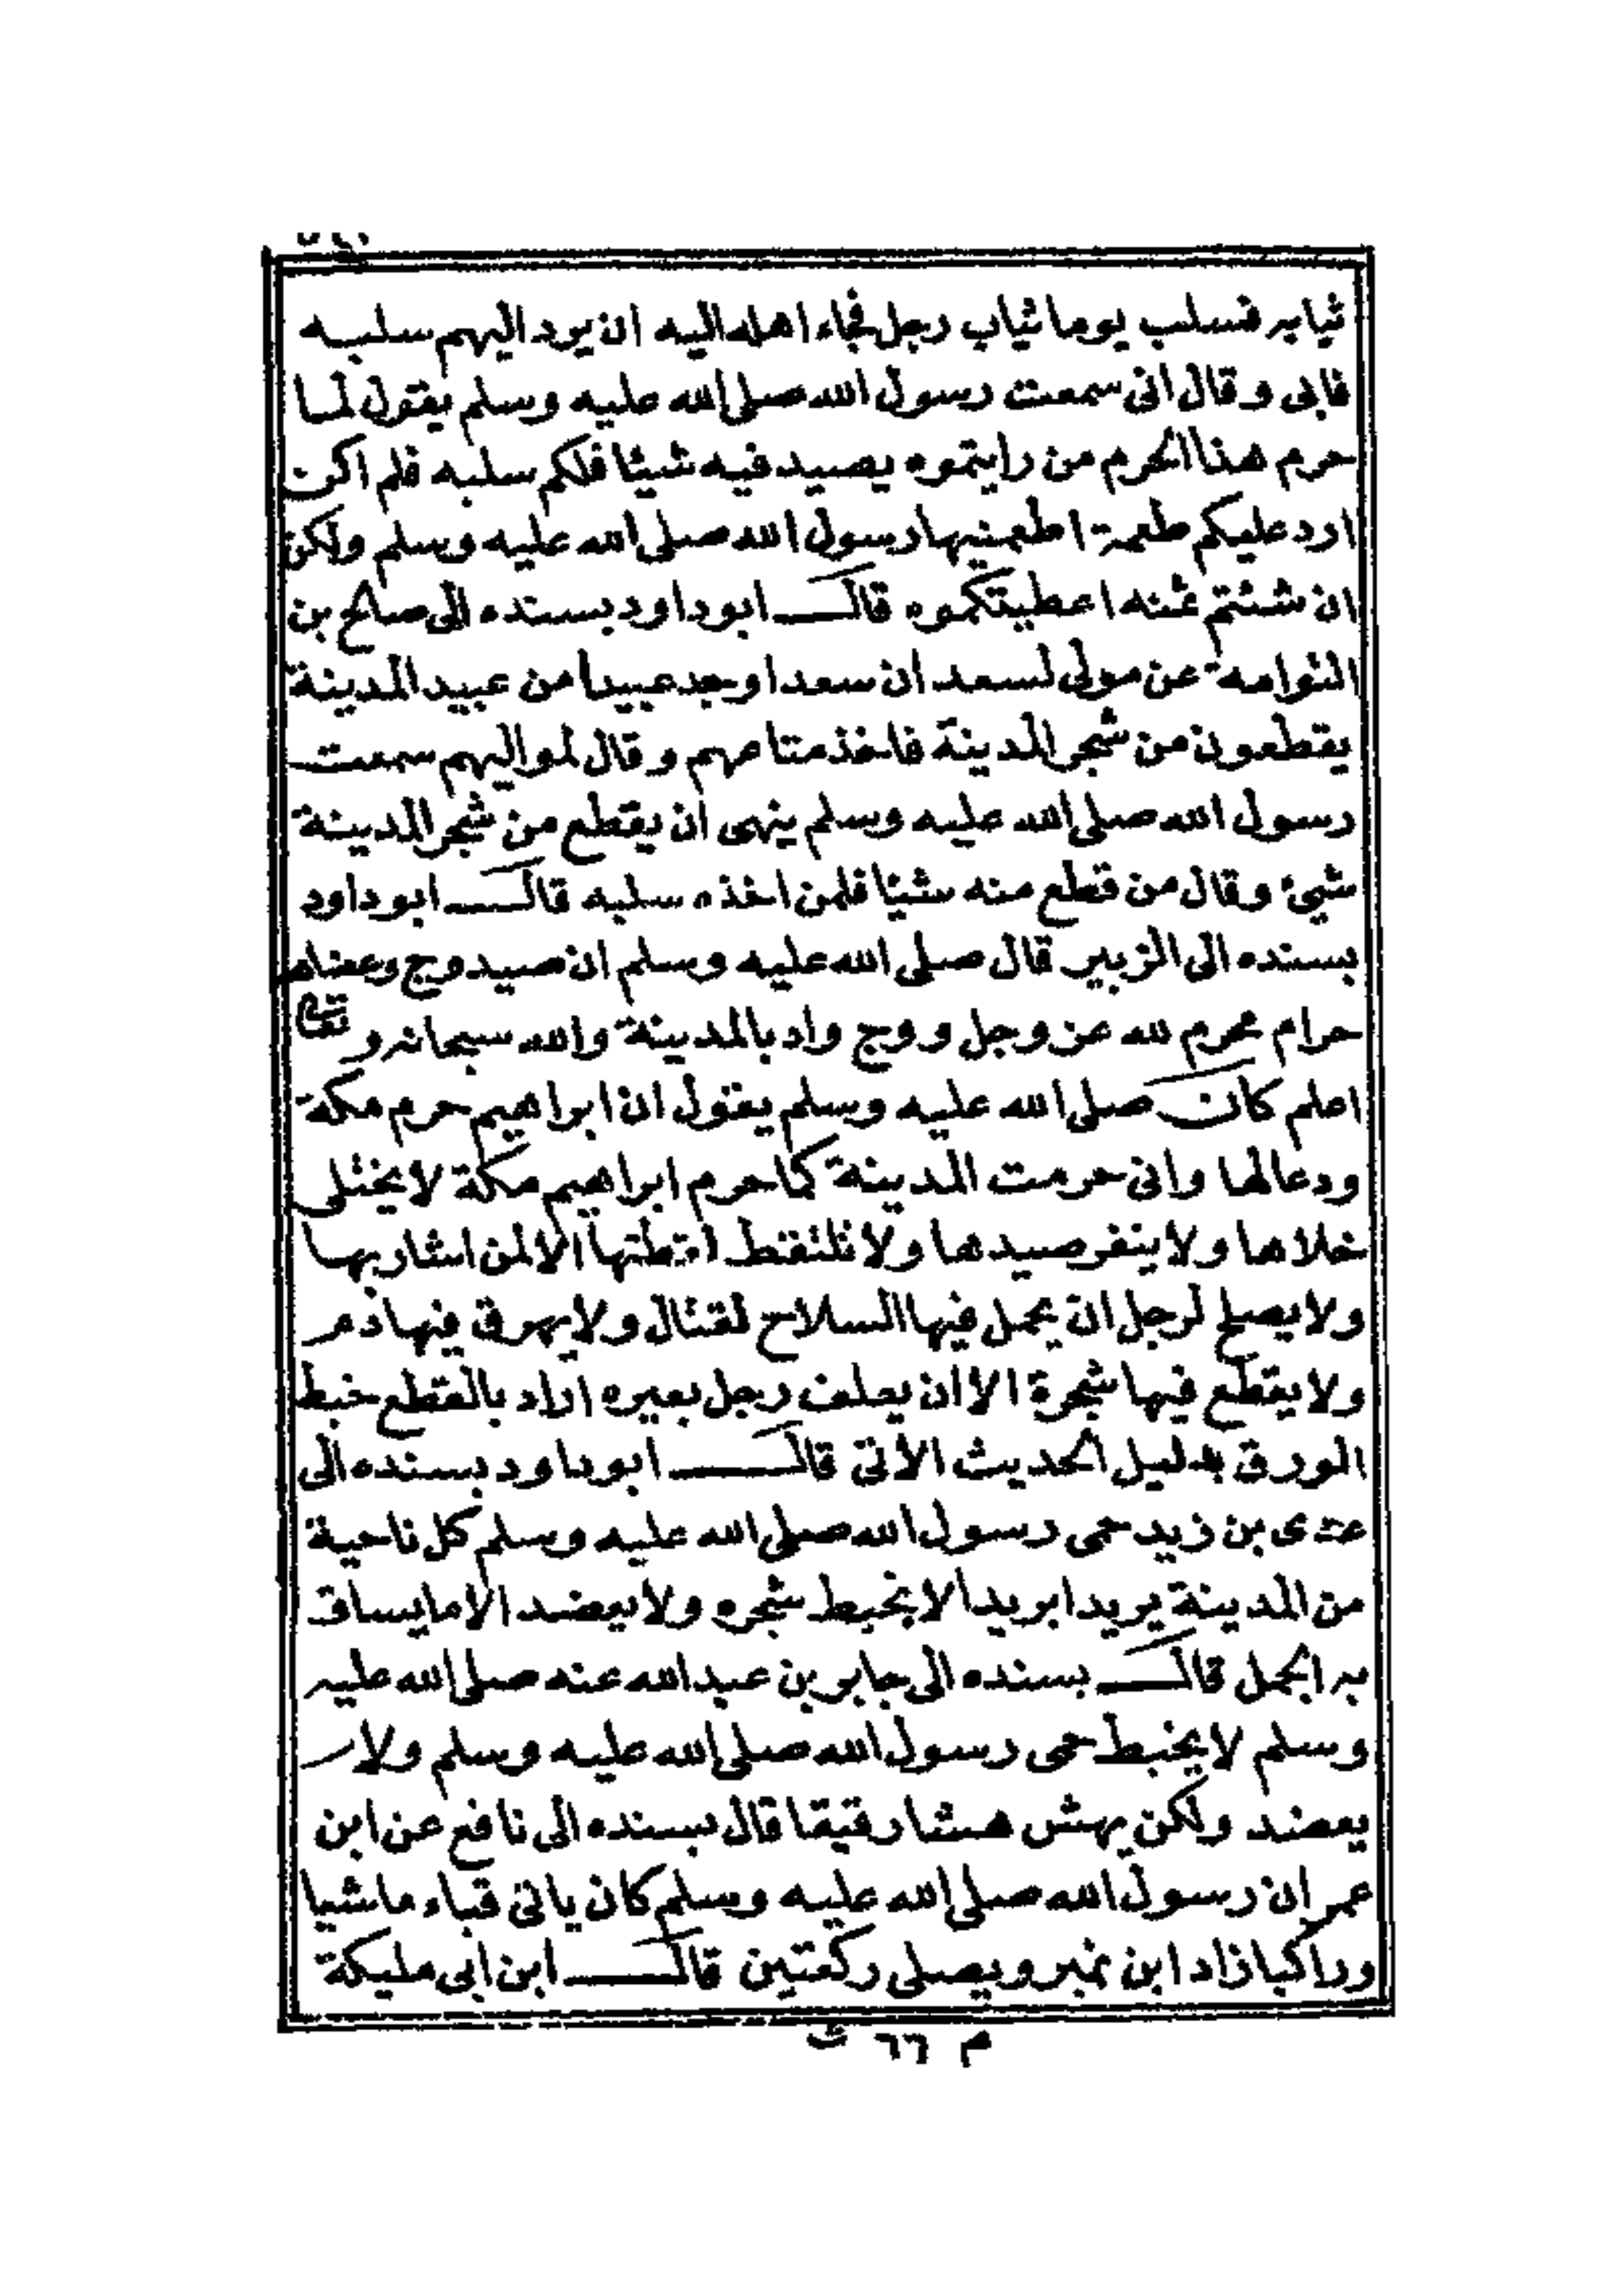 ثيابه فسلب يوما ثياب رجل فجاء اهله اليه ان يرد اليهم سلبه
فابى وقال انى سمعت رسول الله صلى الله عليه وسلم يقول لما
حرم هذا الحرم من رايتموه يصيد فيه شيئا فلكم سلبه فلم اكن
ارد عليكم طعمة اطعمنيها رسول الله صلى الله عليه وسلم ولكن
ان شئتم ثمنه اعطيتكموه قال ابو داود بسنده الى صالح بن
التوامة عن مولى لسعد ان سعدا وجد عبيدا من عبيد المدينة
يقطعون من شجر المدينة فاخذ متاعهم وقال لمواليهم سمعت
رسول الله صلى الله عليه وسلم ينهى ان يقطع من شجر المدينة
شيئ وقال من قطع منه شيئا فلمن اخذه سلبه قال ابو داود
بسنده الى الزبير قال صلى الله عليه وسلم ان صيد وج وعضاهه
حرام محرم لله عز وجل ووج واد بالمدينة والله سبحانه وتعالى
اعلم كان صلى الله عليه وسلم يقول ان ابراهيم حرم مكة
ودعا لها وانى حرمت المدينة كما حرم ابراهيم مكة لا يختلى
خلاها ولا ينفر صيدها ولا تلتقط لقطتها الا لمن اشار بها
ولا يصلح لرجل ان يحمل فيها السلاح لقتال ولا يهرق فيها دم
ولا يقطع فيها شجرة الا ان يعلف رجل بعيره اراد بالقطع خبط
الورق بدليل الحديث الاتى قال ابو داود بسنده الى
عدى بن زيد حمى رسول الله صلى الله عليه وسلم كل ناحية
من المدينة بريدا بريدا لا يخبط شجره ولا يعضد الا ما يساق
به الجمل قال بسنده الى جابر بن عبد الله عنه صلى الله عليه
وسلم لا يخبط حمى رسول الله صلى الله عليه وسلم ولا
يعضد ولكن يهش هشا رقيقا قال بسنده الى نافع عن ابن
عمر ان رسول الله صلى الله عليه وسلم كان ياتى قباء ماشيا
وراكبا زاد ابن نمير ويصلى ركعتين قال ابن ابى مليكة
م ٦٦ ث